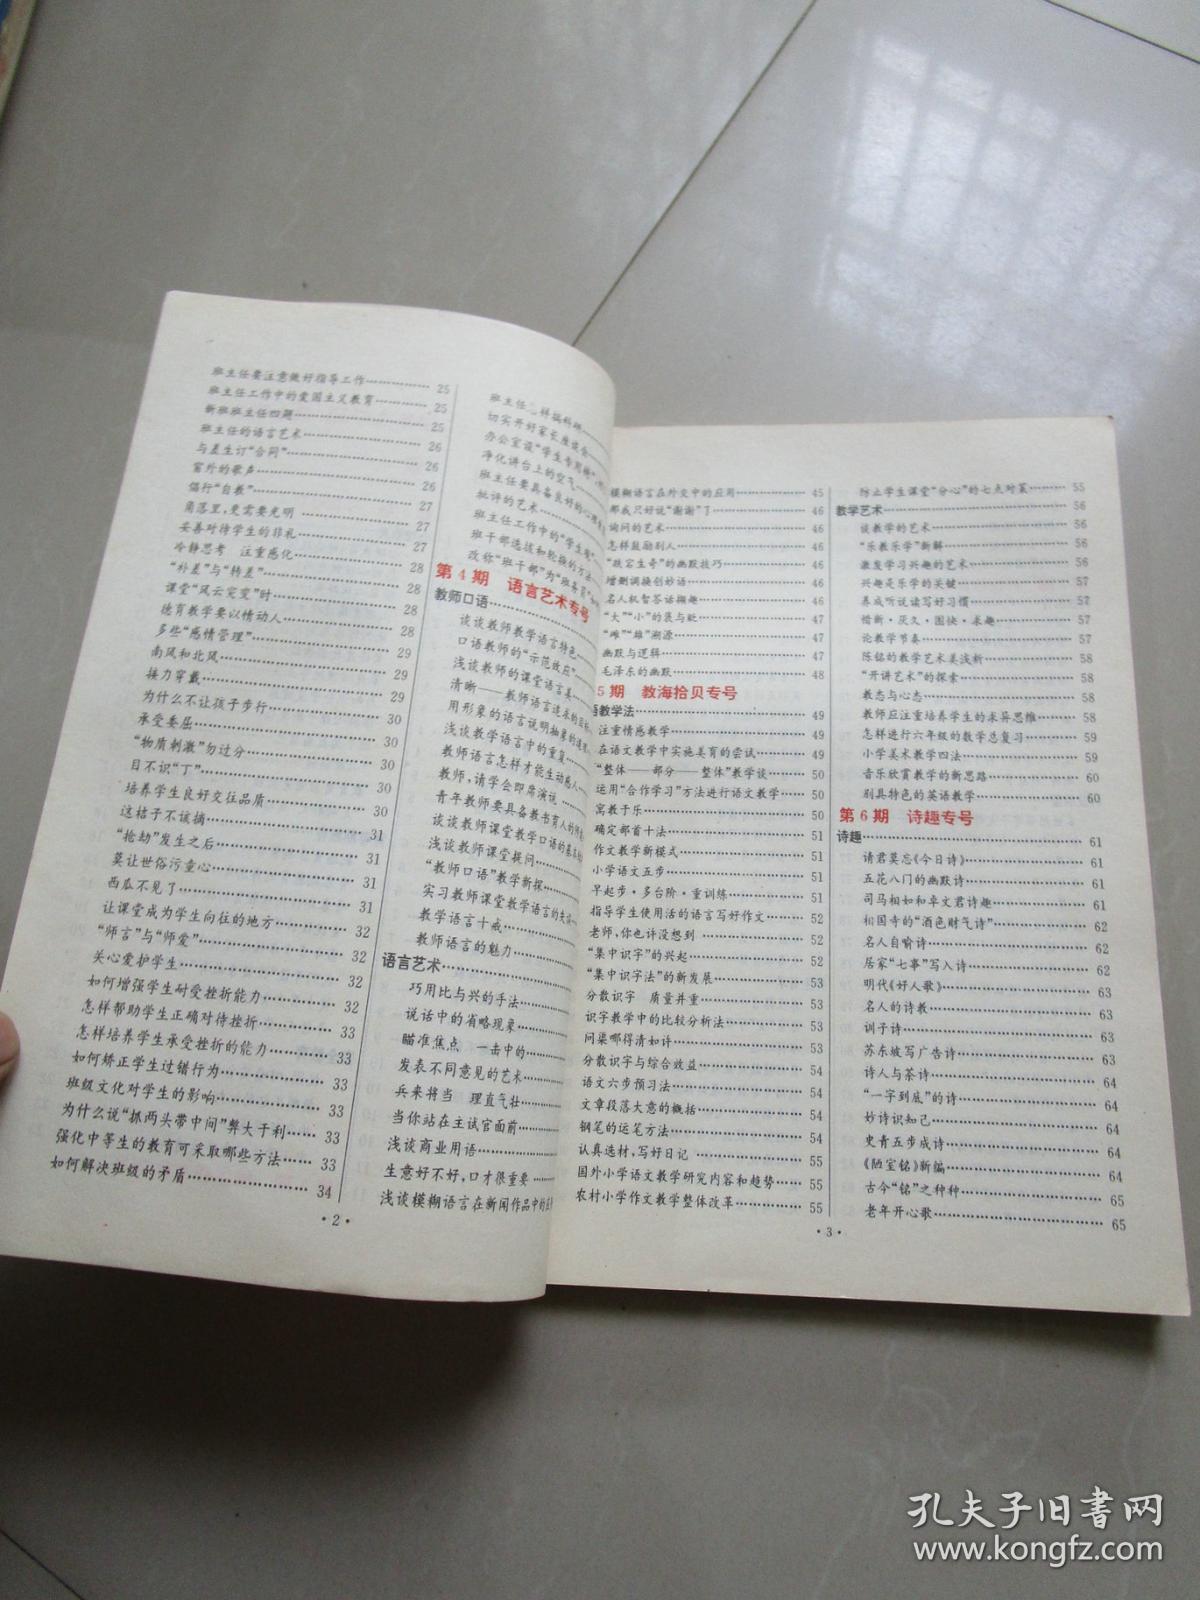 班主任要注意做好指导工作 25
班主任工作中的爱国主义教育 25
新班班主任四题 25
班主任的语言艺术 26
与差生订“合同” 26
窗外的歌声 26
倡行“自教” 27
角落里,更需要光明 27
妥善对待学生的非礼 27
冷静思考 注重感化 28
“补差”与“转差” 28
课堂“风云突变”时 28
德育教学要以情动人 28
多些“感情管理” 29
南风和北风 29
接力穿戴 29
为什么不让孩子步行 30
承受委屈 30
“物质刺激”勿过分 30
目不识“丁” 30
培养学生良好交往品质 30
这桔子不该摘 31
“抢劫”发生之后 31
莫让世俗污童心 31
西瓜不见了 31
让课堂成为学生向往的地方 32
“师言”与“师爱” 32
关心爱护学生 32
如何增强学生耐受挫折能力 32
怎样帮助学生正确对待挫折 33
怎样培养学生承受挫折的能力 33
如何矫正学生过错行为 33
班级文化对学生的影响 33
为什么说“抓两头带中间”弊大于利 33
强化中等生的教育可采取哪些方法 33
如何解决班级的矛盾 34
·2·
切实开好家长座谈会
净化讲台上的空气
批评的艺术
班干部选拔和轮换的方法
第4期 语言艺术专号
教师口语
谈谈教师教学语言特色
口语教师的“示范效应”
浅谈教师的课堂语言美
用形象的语言说明抽象的道理
浅谈教学语言中的重复
教师语言怎样才能生动感人
教师,请学会即席演说
青年教师要具备教书育人的
谈谈教师课堂教学口语的基本
浅谈教师课堂提问
“教师口语”教学新探
实习教师课堂教学语言的失误
教学语言十戒
教师语言的魅力
语言艺术
巧用比与兴的手法
说话中的省略现象
瞄准焦点 一击中的
发表不同意见的艺术
兵来将当 理直气壮
当你站在主试官面前
浅谈商业用语
生意好不好,口才很重要
浅谈模糊语言在新闻作品中的
模糊语言在外交中的应用 45
那我只好说“谢谢”了 46
询问的艺术 46
怎样鼓励别人 46
“跌宕生奇”的幽默技巧 46
增删调换创妙语 46
名人机智答话撷趣 46
“大”“小”的褒与贬 47
“雌”“雄”溯源 47
幽默与逻辑 47
毛泽东的幽默 48
5期 教海拾贝专号
语教学法 49
注重情感教学 49
在语文教学中实施美育的尝试 49
“整体——部分——整体”教学谈 50
运用“合作学习”方法进行语文教学 50
寓教于乐 50
确定部首十法 51
作文教学新模式 51
小学语文五步 51
早起步·多台阶·重训练 51
指导学生使用活的语言写好作文 52
老师,你也许没想到 52
“集中识字”的兴起 52
“集中识字法”的新发展 53
分散识字 质量并重 53
识字教学中的比较分析法 53
问渠哪得清如许 53
分散识字与综合效益 54
语文六步预习法 54
文章段落大意的概括 54
钢笔的运笔方法 54
认真选材,写好日记 55
国外小学语文教学研究内容和趋势 55
农村小学作文教学整体改革 55
防止学生课堂“分心”的七点对策 55
教学艺术 56
谈教学的艺术 56
“乐教乐学”新解 56
激发学习兴趣的艺术 56
兴趣是乐学的关键 57
养成听说读写好习惯 57
惜新·厌久·图快·求趣 57
论教学节奏 57
陈铭的教学艺术美浅析 58
“开讲艺术”的探索 58
教态与心态 58
教师应注重培养学生的求异思维 58
怎样进行六年级的数学总复习 59
小学美术教学四法 59
音乐欣赏教学的新思路 60
别具特色的英语教学 60
第6期 诗趣专号
诗趣 61
请君莫忘《今日诗》 61
五花八门的幽默诗 61
司马相如和卓文君诗趣 61
相国寺的“酒色财气诗” 62
名人自喻诗 62
居家“七事”写入诗 62
明代《好人歌》 63
名人的诗教 63
训子诗 63
苏东坡写广告诗 63
诗人与茶诗 64
“一字到底”的诗 64
妙诗识知己 64
史青五步成诗 64
《陋室铭》新编 64
古今“铭”之种种 65
老年开心歌 65
·3·
孔夫子旧书网
www.kongfz.com